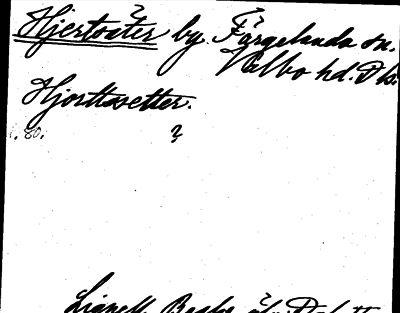 Hjertsäter by. Färgelanda sn.
Valbo hd. Dls.
Hjorttsetter.
1.80. 2
Lignell, Beskr. öfv. Dal